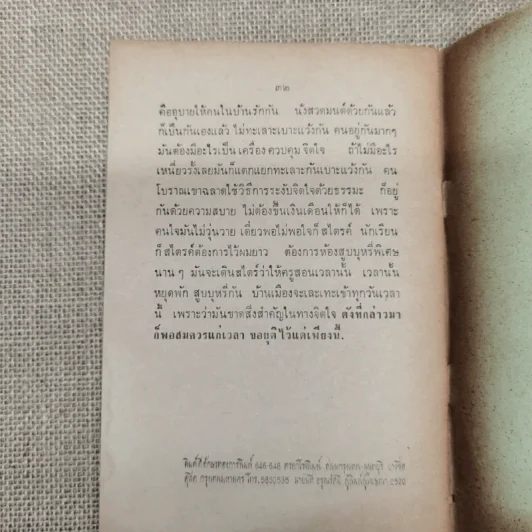 ๓๒
คืออุบายให้คนในบ้านรักกัน นั่งสวดมนต์ด้วยกันแล้ว
ก็เป็นกันเองแล้ว ไม่ทะเลาะเบาะแว้งกัน คนอยู่กันมากๆ
มันต้องมีอะไรเป็นเครื่องควบคุมจิตใจ ถ้าไม่มีอะไร
เหนี่ยวรั้งเลยมันก็แตกแยกทะเลาะกันเบาะแว้งกัน คน
โบราณเขาฉลาดใช้วิธีการระงับจิตใจด้วยธรรมะ ก็อยู่
กันด้วยความสบาย ไม่ต้องขึ้นเงินเดือนให้ก็ได้ เพราะ
คนใจมันไม่วุ่นวาย เดี๋ยวพอไม่พอใจก็สไตรค์ นักเรียน
ก็สไตรค์ต้องการไว้ผมยาว ต้องการห้องสูบบุหรี่พิเศษ
นานๆ มันจะเดินสไตร์ว่าให้ครูสอนเวลานั้น เวลานั้น
หยุดพัก สูบบุหรี่กัน บ้านเมืองจะเละเทะเข้าทุกวันเวลา
นี้ เพราะว่ามันขาดสิ่งสำคัญในทางจิตใจ ดังที่กล่าวมา
ก็พอสมควรแก่เวลา ขอยุติไว้แต่เพียงนี้.